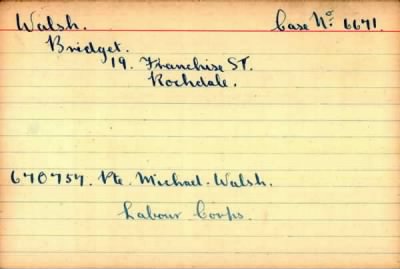 Walsh. Case No. 6671.
Bridget.
19. Franchise St.
Rochdale.
670757. Pte. Michael. Walsh.
Labour Corps.